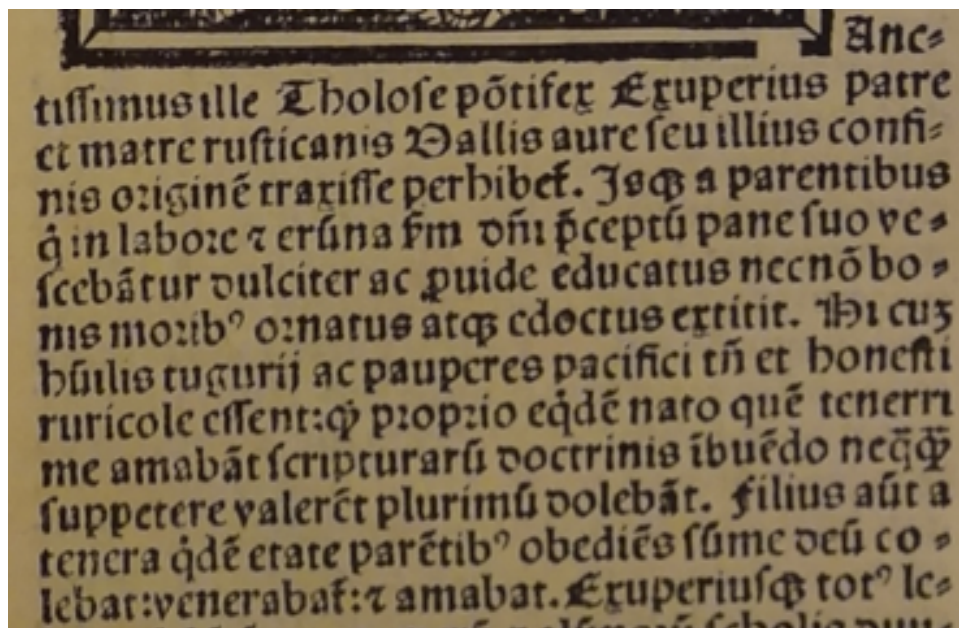 Anc⸗
tiſſimus ille Tholoſe põtifex Exuperius patre
et matre ruſticanis Vallis aure ſeu illius confi⸗
nis originẽ traxiſſe perhibet᷑. Iſqꝫ a parentibus
q̇ in labore ⁊ erũna ẜm dñi p̃ceptũ pane ſuo ve⸗
ſcebãtur dulciter ac ꝓuide educatus necnõ bo⸗
nis moribꝰ ornatus atqꝫ edoctus extitit. Hi cuꝫ
hũilis tugurij ac pauperes pacifici tñ et honeſti
ruricole eſſent: ꝙ proprio eq̇dẽ nato quẽ tenerri
me amabãt ſcripturarũ doctrinis ĩbuẽdo neq̃ꝙ̃
ſuppetere valerẽt plurimũ dolebãt. Filius aũt a
tenera q̇dẽ etate parẽtibꝰ obediẽs ſũme deũ co⸗
lebat: venerabat᷑: ⁊ amabat. Exuperiuſqꝫ totꝰ le⸗
ſcholis